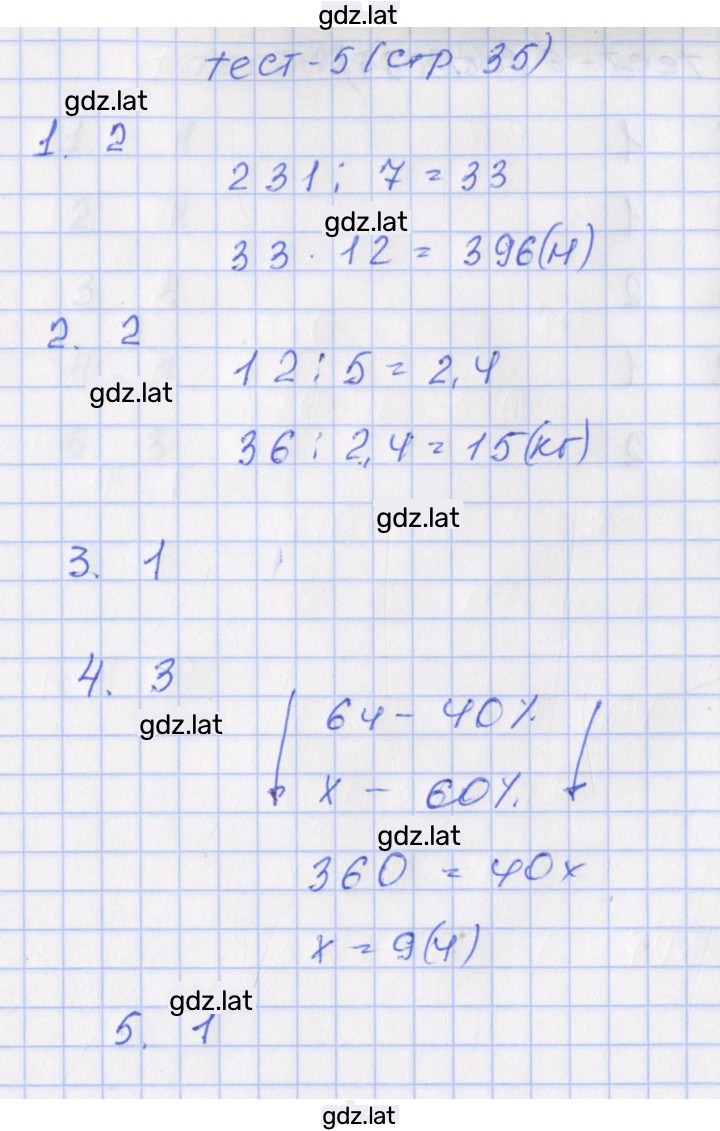 gdz.lat
тест-5 (стр. 35)
gdz.lat
1. 2
231 : 7 = 33
gdz.lat
33 · 12 = 396(м)
2. 2
12 : 5 = 2,4
gdz.lat
36 : 2,4 = 15(кг)
gdz.lat
3. 1
4. 3
gdz.lat
6ч - 40%
x - 60%
gdz.lat
360 = 40x
x = 9(ч)
gdz.lat
5. 1
gdz.lat